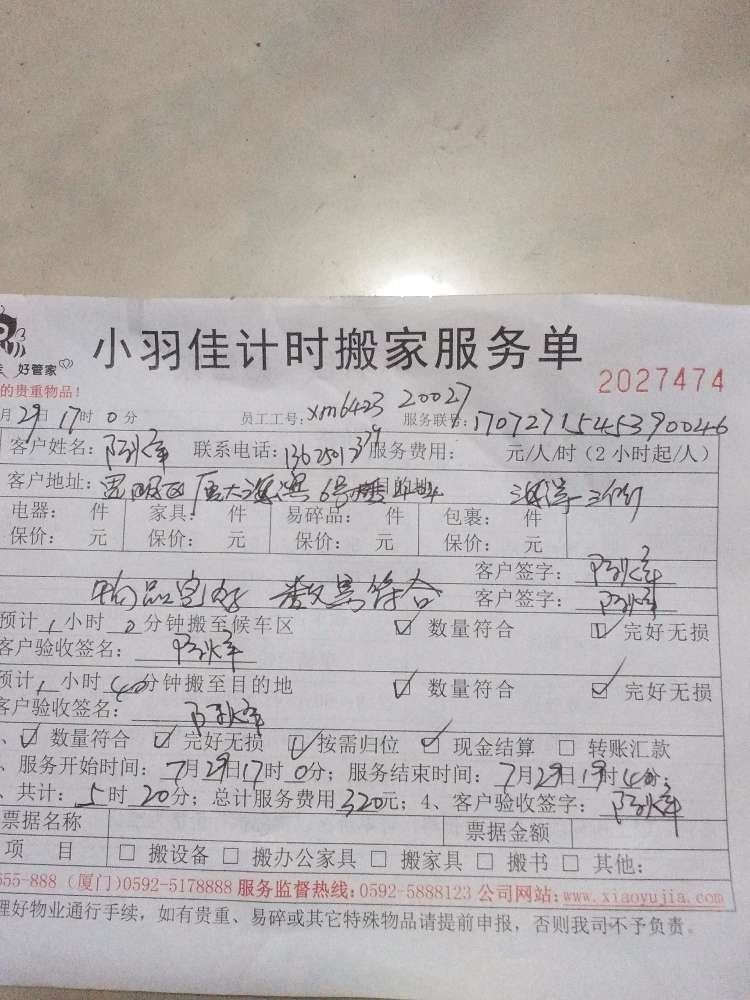 小羽佳计时搬家服务单
好管家
2027474
的贵重物品!
月29日17时0分 员工工号:xm6423 20027 服务联号:1707271545390046
客户姓名: 联系电话: 服务费用: 元/人/时(2小时起/人)
客户地址:思明区厦大海滨6号 目的地 海洋三所
电器: 件 家具: 件 易碎品: 件 包裹: 件
保价: 元 保价: 元 保价: 元 保价: 元
客户签字:
物品完好 数量符合 客户签字:
预计1小时2分钟搬至候车区 ☑ 数量符合 ☑ 完好无损
客户验收签名:
预计1小时40分钟搬至目的地 ☑ 数量符合 ☑ 完好无损
客户验收签名:
、☑ 数量符合 ☑ 完好无损 ☑ 按需归位 ☑ 现金结算 □ 转账汇款
、服务开始时间:7月29日17时0分;服务结束时间:7月29日19时40分;
、共计:5时20分;总计服务费用320元;4、客户验收签字:
票据名称 票据金额
项 目 □ 搬设备 □ 搬办公家具 □ 搬家具 □ 搬书 □ 其他:
555-888 (厦门)0592-5178888 服务监督热线:0592-5888123 公司网站:www.xiaoyujia.com
理好物业通行手续,如有贵重、易碎或其它特殊物品请提前申报,否则我司不予负责。